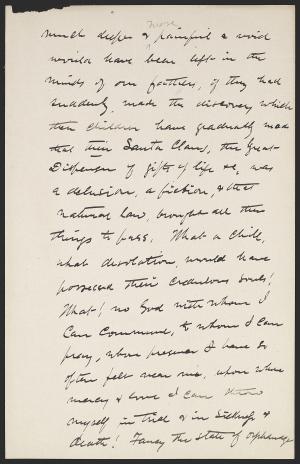 more
much deeper & painful a void
would have been left in the
minds of our fathers, if they had
suddenly made the discovery which
their children have gradually made
that their Santa Claus, the Great
Dispenser of gifts of life &c, was
a delusion, a fiction, & that
natural law, brought all these
things to pass. What a chill,
what desolation, would have
possessed their credulous souls!
What! no God with whom I
can commune, to whom I can
pray, whose presence I have so
often felt near me, upon whose
mercy & love I can throw
myself in trial & in sickness &
death! Fancy the state of orphanage